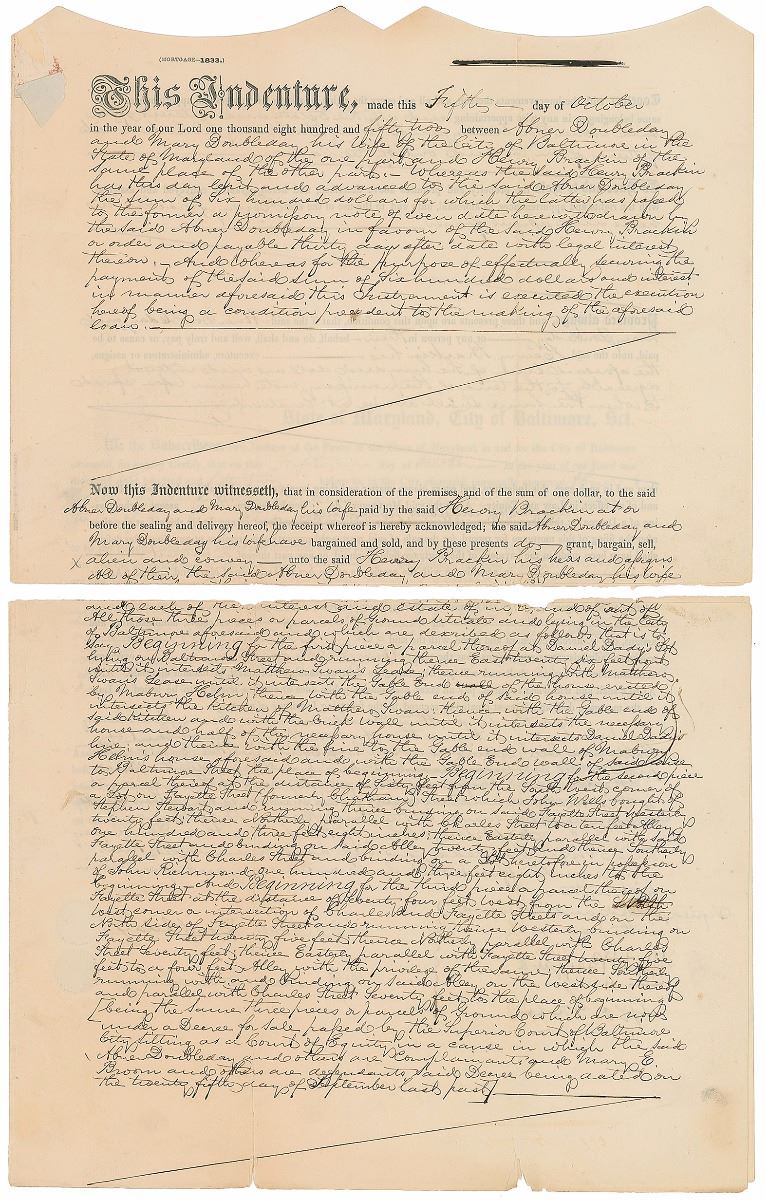 (MORTGAGE—1833.)
This Indenture, made this Fifth day of October
in the year of our Lord one thousand eight hundred and fifty two between Abner Doubleday
and Mary Doubleday his wife of the City of Baltimore in the
State of Maryland of the one part, and Henry Brackin of the
same place of the other part. — Whereas the said Henry Brackin
has this day lent and advanced to the said Abner Doubleday
the sum of Six hundred dollars for which the latter has passed
to the former a promissory note of even date herewith drawn by
the said Abner Doubleday in favor of the said Henry Brackin
or order and payable thirty days after date with legal interest
thereon. — And Whereas for the purpose of effectually securing the
payment of the said sum of Six hundred dollars and interest
in manner aforesaid this Instrument is executed the execution
hereof being a condition precedent to the making of the aforesaid
loan. —
Now this Indenture witnesseth, that in consideration of the premises, and of the sum of one dollar, to the said
Abner Doubleday and Mary Doubleday his wife paid by the said Henry Brackin at or
before the sealing and delivery hereof, the receipt whereof is hereby acknowledged; the said Abner Doubleday and
Mary Doubleday his wife have bargained and sold, and by these presents do grant, bargain, sell,
x alien and convey unto the said Henry Brackin his heirs and assigns
the said Abner Doubleday and Mary Doubleday his wife
and each of the interest and estate of in and of out of
All those three pieces or parcels of Ground situate and lying in the City
of Baltimore aforesaid and which are described as follows that is to
say Beginning for the first piece a parcel thereof at Daniel Dady's Lot
lying on Baltimore Street and running thence East twenty six feet
until it intersects Matthew Swan's Lease; thence running with Matthew
Swan's Lease until it intersects the Gable End of the house erected
by Mabury Helms; thence with the Gable end of said house until it
intersects the Kitchen of Matthew Swan thence with the Gable end of
said Kitchen and with the brick wall until it intersects the necessary
house and half of the necessary house until it intersects Daniel Dady's
line; and thence with the line to the Gable end wall of Mabury
Helms house aforesaid and with the Gable End wall of said house
to Baltimore Street the place of beginning. Beginning for the second piece
or parcel thereof at the distance of Sixty feet from the South west corner of
a Lot on Fayette Street (formerly Chatham) Street which John Wells bought of
Stephen Stewart and running thence binding on said Fayette Street westerly
twenty feet; thence Northerly parallel with Charles Street to a ten feet Alley
one hundred and three feet eight inches; thence Easterly parallel with said
Fayette Street and binding on said Alley twenty feet and thence Southerly
parallel with Charles Street and binding on a Lot heretofore in possession
of John Richmond one hundred and three feet eight inches to the
beginning — And Beginning for the third piece a parcel thereof on
Fayette Street at the distance of Seventy four feet west from the North
west corner or intersection of Charles and Fayette Streets and on the
North side of Fayette Street and running thence Westerly binding on
Fayette Street twenty five feet; thence Northerly parallel with Charles
Street Seventy feet; thence Easterly parallel with Fayette Street twenty five
feet to a four feet Alley with the privilege of the same; thence Southerly
running with and binding on said Alley on the west side thereof
and parallel with Charles Street Seventy feet to the place of beginning
[being the same three pieces or parcels of Ground which are now
under a Decree for Sale passed by the Superior Court of Baltimore
City sitting as a Court of Equity in a cause in which the said
Abner Doubleday and others are Complainants and Mary E.
Broom and others are defendants said Decree being dated on
the twenty fifth day of September last past]